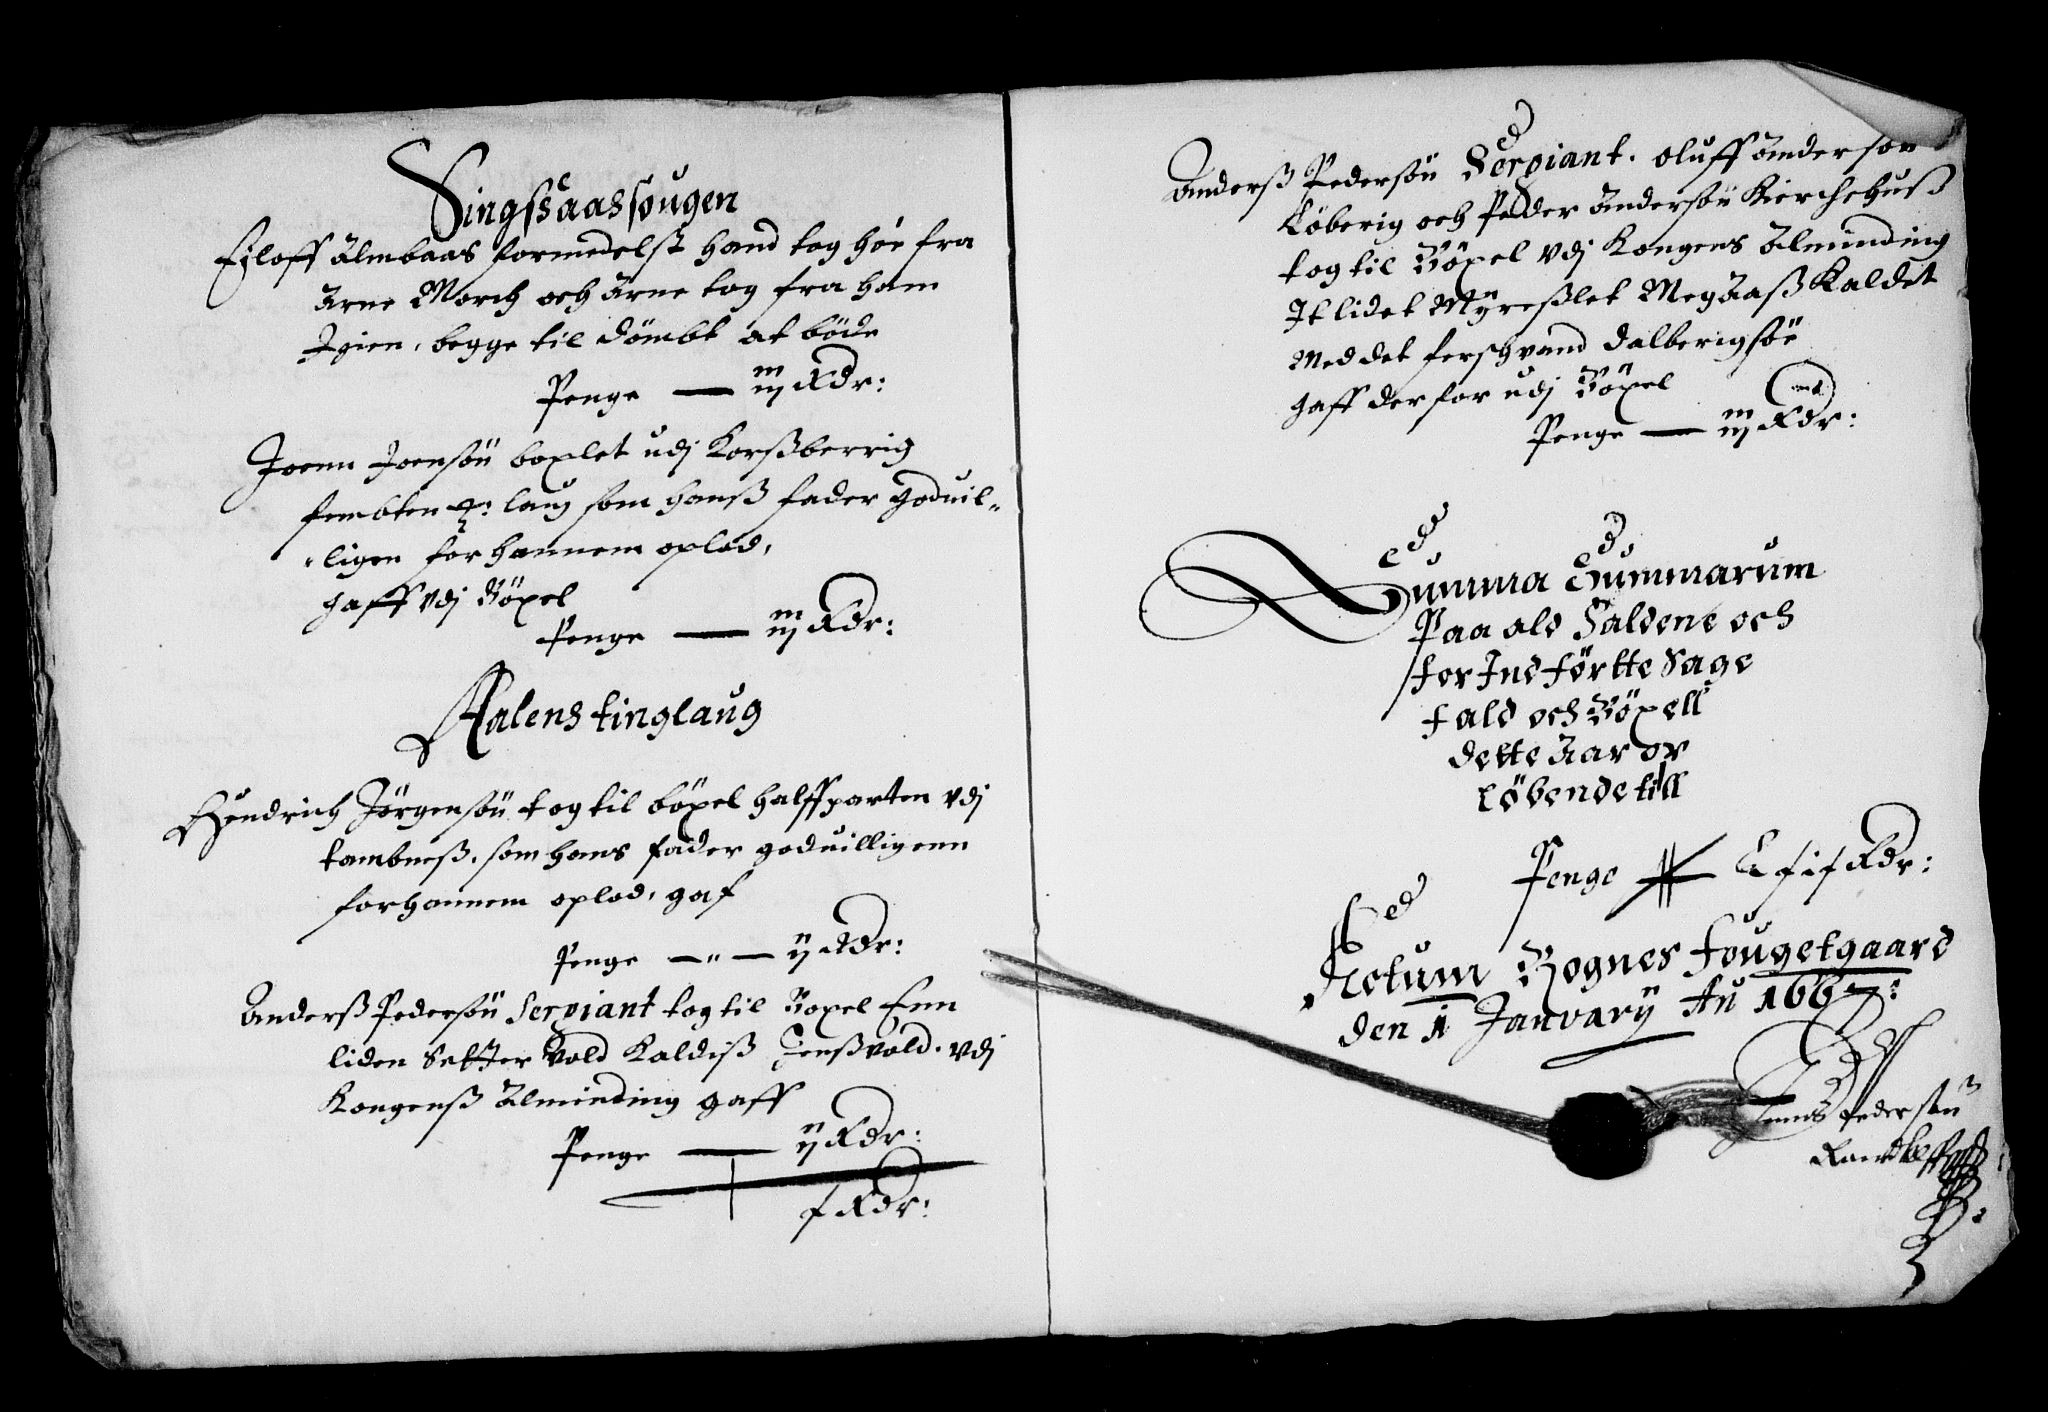 Singsaas sougen
Ejloff Almbaas formedelst hand tog höe fra
Arne Morch och Arne tog fra ham
Igien, begge til dömbt atböde
Penge — iij Rdr:
Joenn Joensön boxlet udj Korßberrig
fembten laug som hanß fader goduil-
ligen for hannem oplod,
gaff vdj Böxel
Penge — iij Rdr:
Aalens tinglaug
Hendrich Jörgensön tog til böxel halffparten vdj
tambneß, som hans fader goduilligenn
for hannem oplod, gaf
Penge — " — ij Rdr:
Anderß Pedersön Sergiant tog til Boxel Enn
liden Setter vold Kaldiß Jenßvold, vdj
Kongenß Alminding gaff
Penge — ij Rdr:
f Rdr:
Anderß Pedersön Sergiant, oluff Anderson
Löberig och Peder Andersön Kierchehuß
tog til Böxel vdj Kongens Alminding
It lidet Myreßlet Megaaß Kaldet
Med det fersch vand dalberigsöe
gaff derfor udj Böxel
Penge — iij Rdr:
Summa Summarum
Paa ald Faldene och
for Indförtte Sage
fald och Böxell
dette Aar er
Löbende till
Penge Rdr:
Actum Rognes fougetgaard
den 1 January An 1667:
Jens Pedersön